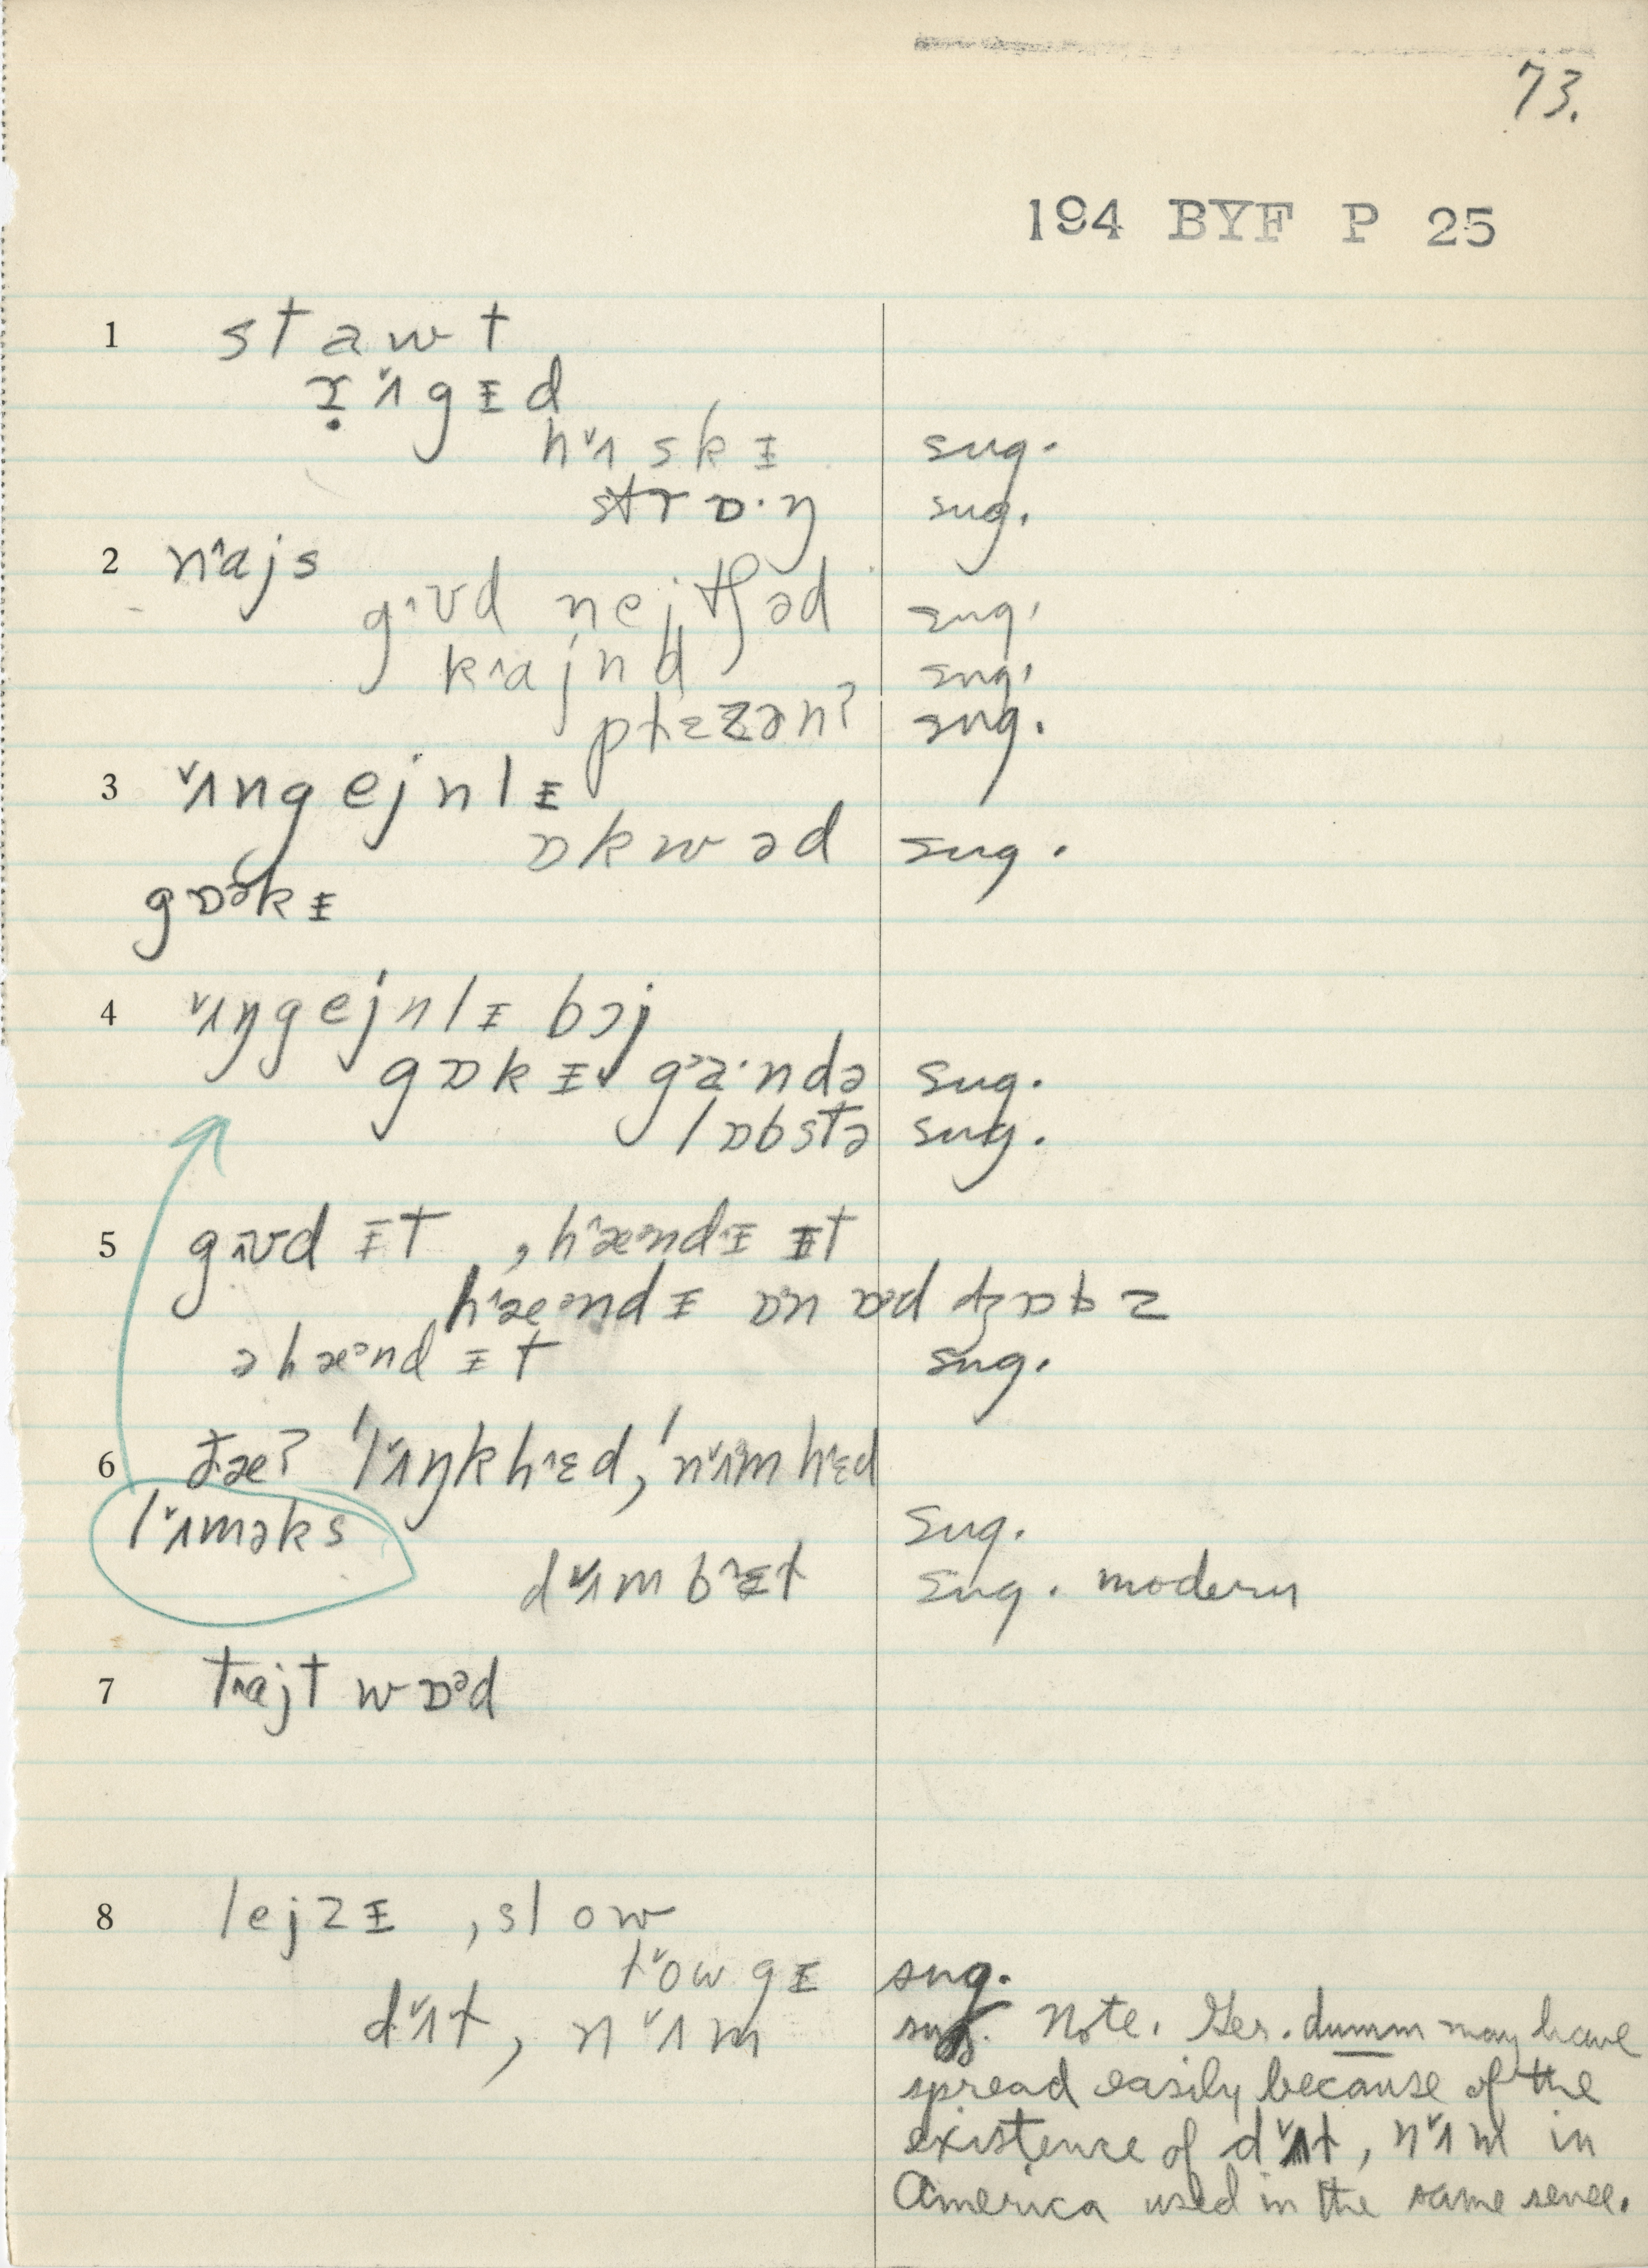 73.
194 BYF P 25
1 stawt
ɤ̣ʌ̌gᵻd
hʌ̌skᵻ sug.
strɒ·ŋ sug.
2 nˆajs
gˆʊd nejtʃəd sug.
kˆajnd sug.
plɛzənʔ sug.
3 ʌ̌ngejnlᵻ
ɒkwəd sug.
gɒᵊkᵻ
4 ʌ̌ŋgejnlᵻ bɔj
gɒkᵻ gᵊa·ndə sug.
lɒbstə sug.
5 gˆʊd ᵻt , hˆæᵊndᵻ ᵻt
hˆæᵊndᵻ ɒn ɒd dʒɒbz
əhæᵊndᵻt sug.
6 ðæʔ 'lʌ̌ŋkhˆɛd, 'nʌ̌mhˆɛd
lʌ̌məks sug.
dʌ̌mbˆɛt sug. modern
7 tˆajtwɒᵊd
8 lejzᵻ , slow
lˇowgᵻ sug.
dʌ̌t, nʌ̌m sug. Note. Ger. dumm may have
spread easily because of the
existence of dʌ̌t, nʌ̌m in
America used in the same sense.